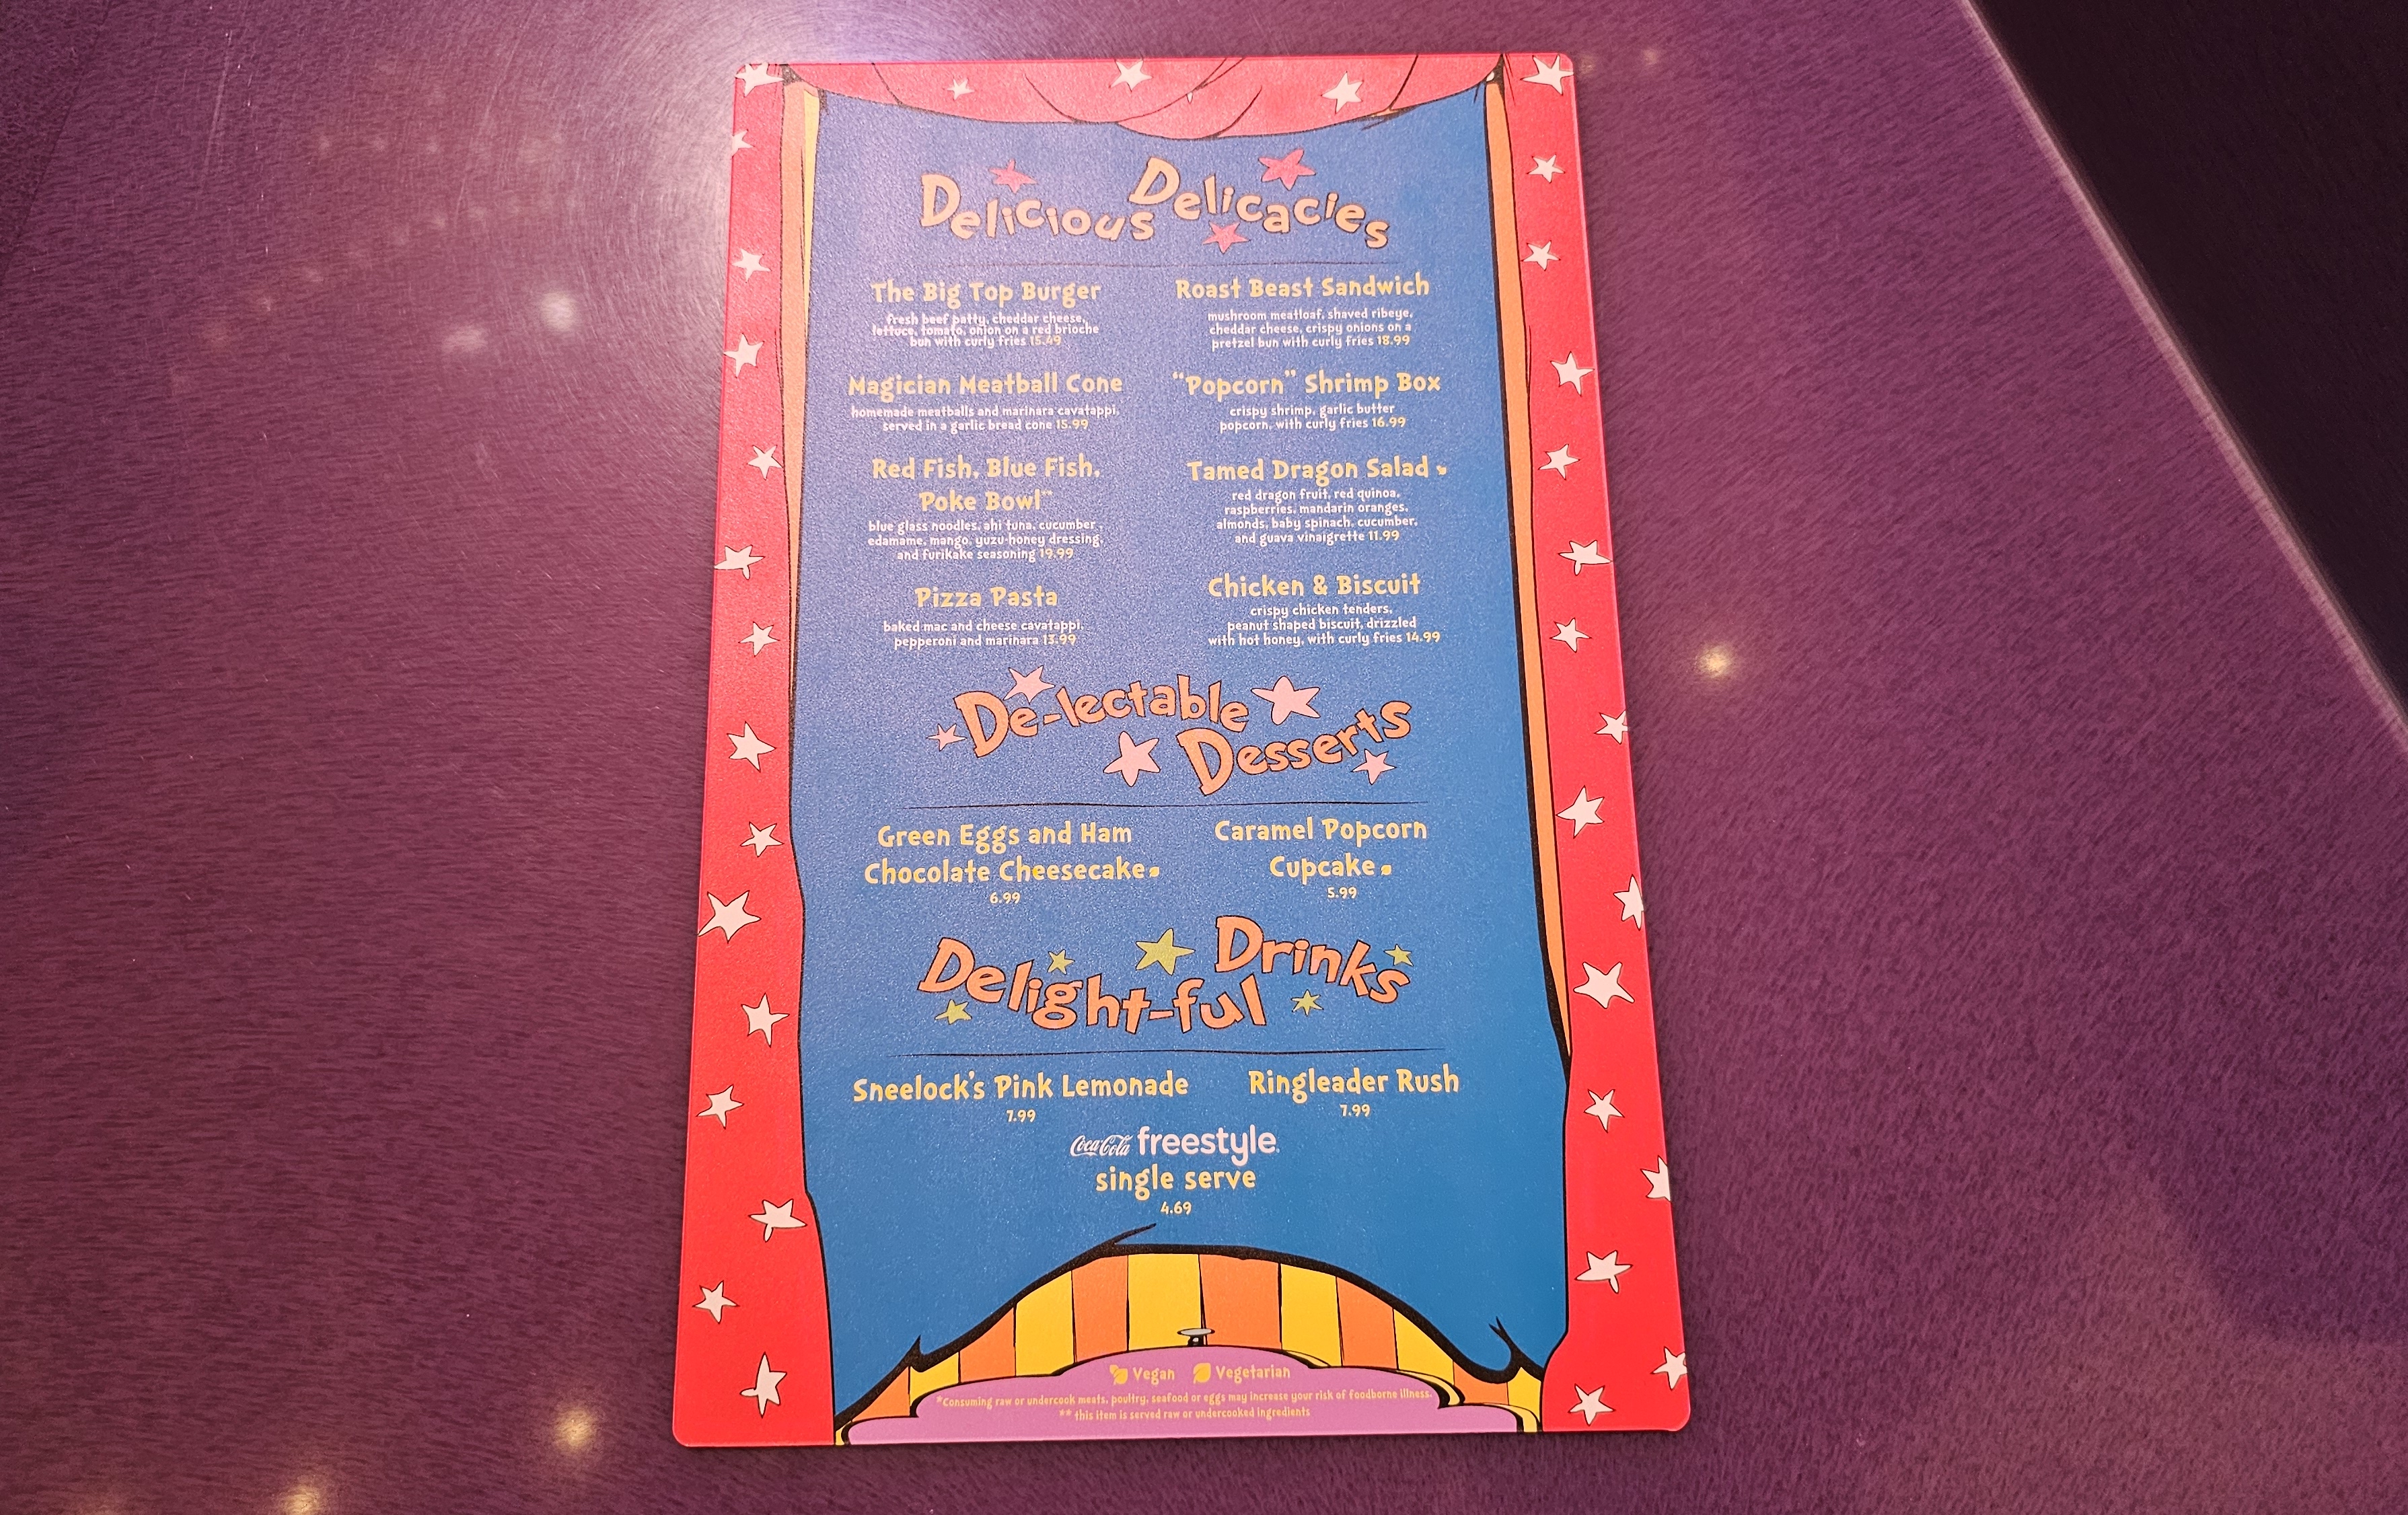 Delicious Delicacies
The Big Top Burger
fresh beef patty, cheddar cheese,
lettuce, tomato, onion on a red brioche
bun with curly fries 15.49
Roast Beast Sandwich
mushroom meatloaf, shaved ribeye,
cheddar cheese, crispy onions on a
pretzel bun with curly fries 18.99
Magician Meatball Cone
homemade meatballs and marinara cavatappi,
served in a garlic bread cone 15.99
"Popcorn" Shrimp Box
crispy shrimp, garlic butter
popcorn, with curly fries 16.99
Red Fish, Blue Fish,
Poke Bowl**
blue glass noodles, ahi tuna, cucumber,
edamame, mango, yuzu-honey dressing,
and furikake seasoning 19.99
Tamed Dragon Salad
red dragon fruit, red quinoa,
raspberries, mandarin oranges,
almonds, baby spinach, cucumber,
and guava vinaigrette 11.99
Pizza Pasta
baked mac and cheese cavatappi,
pepperoni and marinara 13.99
Chicken & Biscuit
crispy chicken tenders,
peanut shaped biscuit, drizzled
with hot honey, with curly fries 14.99
De-lectable
Desserts
Green Eggs and Ham
Chocolate Cheesecake
6.99
Caramel Popcorn
Cupcake
5.99
Delight-ful Drinks
Sneelock's Pink Lemonade
7.99
Ringleader Rush
7.99
Coca-Cola freestyle
single serve
4.69
Vegan Vegetarian
*Consuming raw or undercook meats, poultry, seafood or eggs may increase your risk of foodborne illness.
** this item is served raw or undercooked ingredients